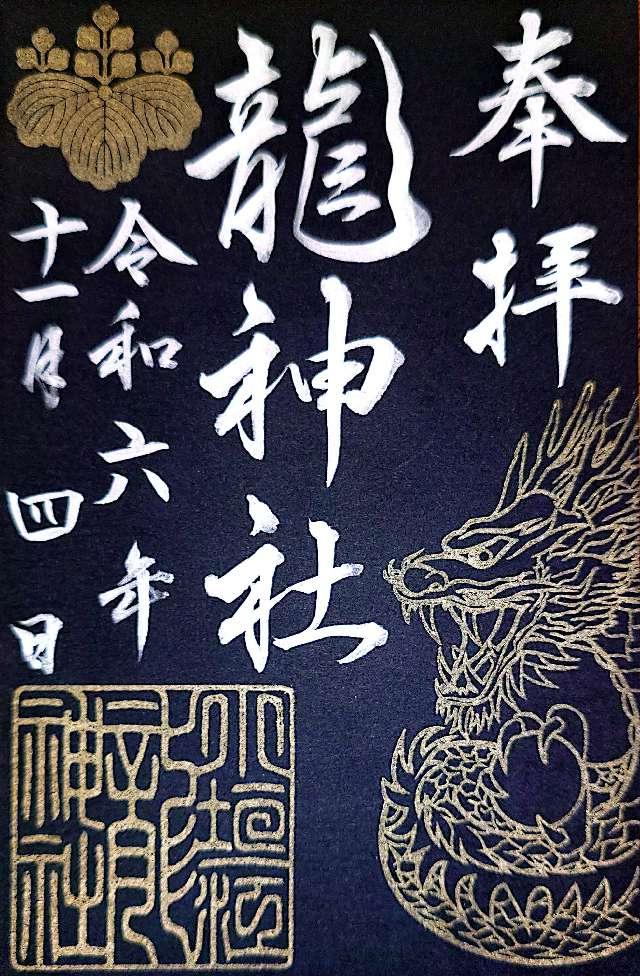 奉拝
龍神社
令和六年
十一月四日